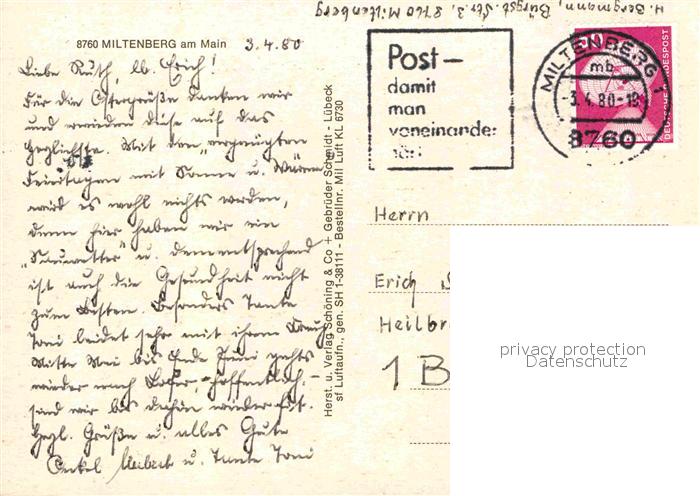 H. Bergmann, Bürgst. Str. 3, 8760 Miltenberg
8760 MILTENBERG am Main 3.4.80
Liebe Ruth, lb. Erich!
Für die Ostergrüße danken wir
und erwidern diese auf das
Herzlichste. Mit den "vergnügten
Feiertagen mit Sonne u. Wärme"
wird es wohl nichts werden,
denn hier haben wir ein
"Sauwetter" u. dementsprechend
ist auch die Gesundheit nicht
zum Besten. Besonders Tante
Toni leidet sehr mit ihrem
Mitte Mai bis Ende Juni gehts
wieder nach - hoffentlich
sind wir bis dahin wieder fit.
Herzl. Grüße u. alles Gute
Onkel u. Tante Toni
Herst. u. Verlag Schöning & Co + Gebrüder Schmidt - Lübeck
sf Luftaufn., gen. SH 1-38111 - Bestellnr. Mil Luft KL 6730
Post-
damit
man
voneinander
hört
MILTENBERG 1
mb
-3.4.80-18
8760
50
DEUTSCHE BUNDESPOST
Herrn
Erich
Heilbr
1 B
privacy protection
Datenschutz